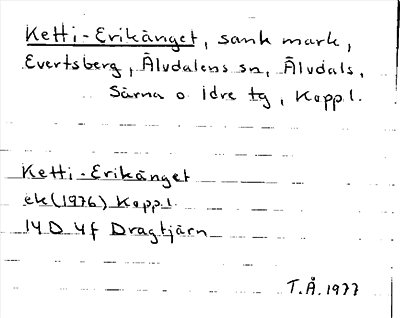 Ketti-Erikänget, sank mark,
Evertsberg, Älvdalens sn, Älvdals,
Särna o Idre tg, Koppl.
Ketti-Erikänget
ek(1976) Koppl.
14D 4f Dragtjärn
T.Å.1977